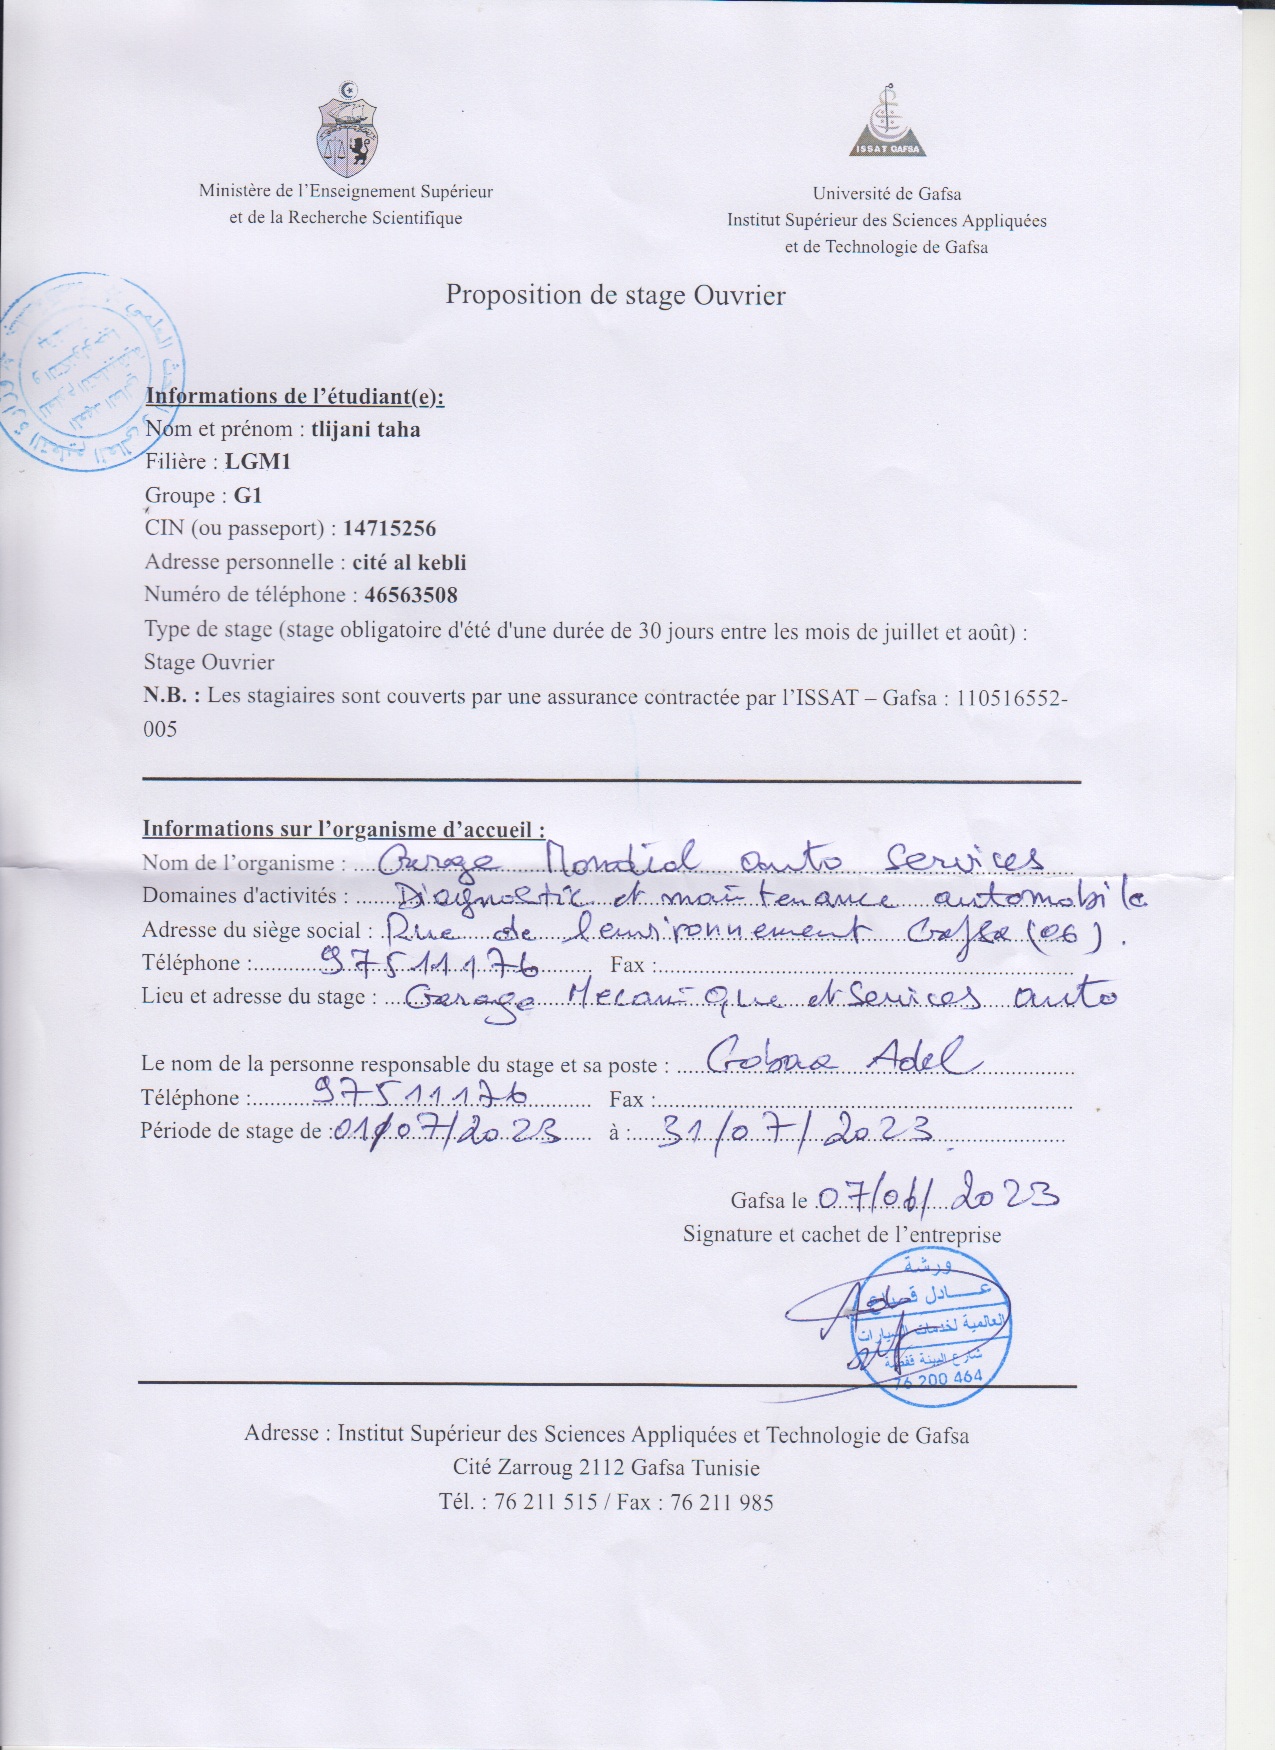 ISSAT GAFSA
Ministère de l'Enseignement Supérieur
et de la Recherche Scientifique
Université de Gafsa
Institut Supérieur des Sciences Appliquées
et de Technologie de Gafsa
Proposition de stage Ouvrier
Informations de l'étudiant(e):
Nom et prénom : tlijani taha
Filière : LGM1
Groupe : G1
CIN (ou passeport) : 14715256
Adresse personnelle : cité al kebli
Numéro de téléphone : 46563508
Type de stage (stage obligatoire d'été d'une durée de 30 jours entre les mois de juillet et août) :
Stage Ouvrier
N.B. : Les stagiaires sont couverts par une assurance contractée par l'ISSAT – Gafsa : 110516552-
005
Informations sur l'organisme d'accueil :
Nom de l'organisme : Garage Mondial auto Services
Domaines d'activités : Diagnostic et maintenance automobile
Adresse du siège social : Rue de l'environnement Gafsa
Téléphone : 97511176 Fax :
Lieu et adresse du stage : Garage Mecanique et Services auto
Le nom de la personne responsable du stage et sa poste : Adel
Téléphone : 97511176 Fax :
Période de stage de : 01/07/2023 à : 31/07/2023
Gafsa le 07/06/2023
Signature et cachet de l'entreprise
ورشة
عادل
العالمية لخدمات السيارات
شارع البيئة قفصة
76 200 464
Adresse : Institut Supérieur des Sciences Appliquées et Technologie de Gafsa
Cité Zarroug 2112 Gafsa Tunisie
Tél. : 76 211 515 / Fax : 76 211 985